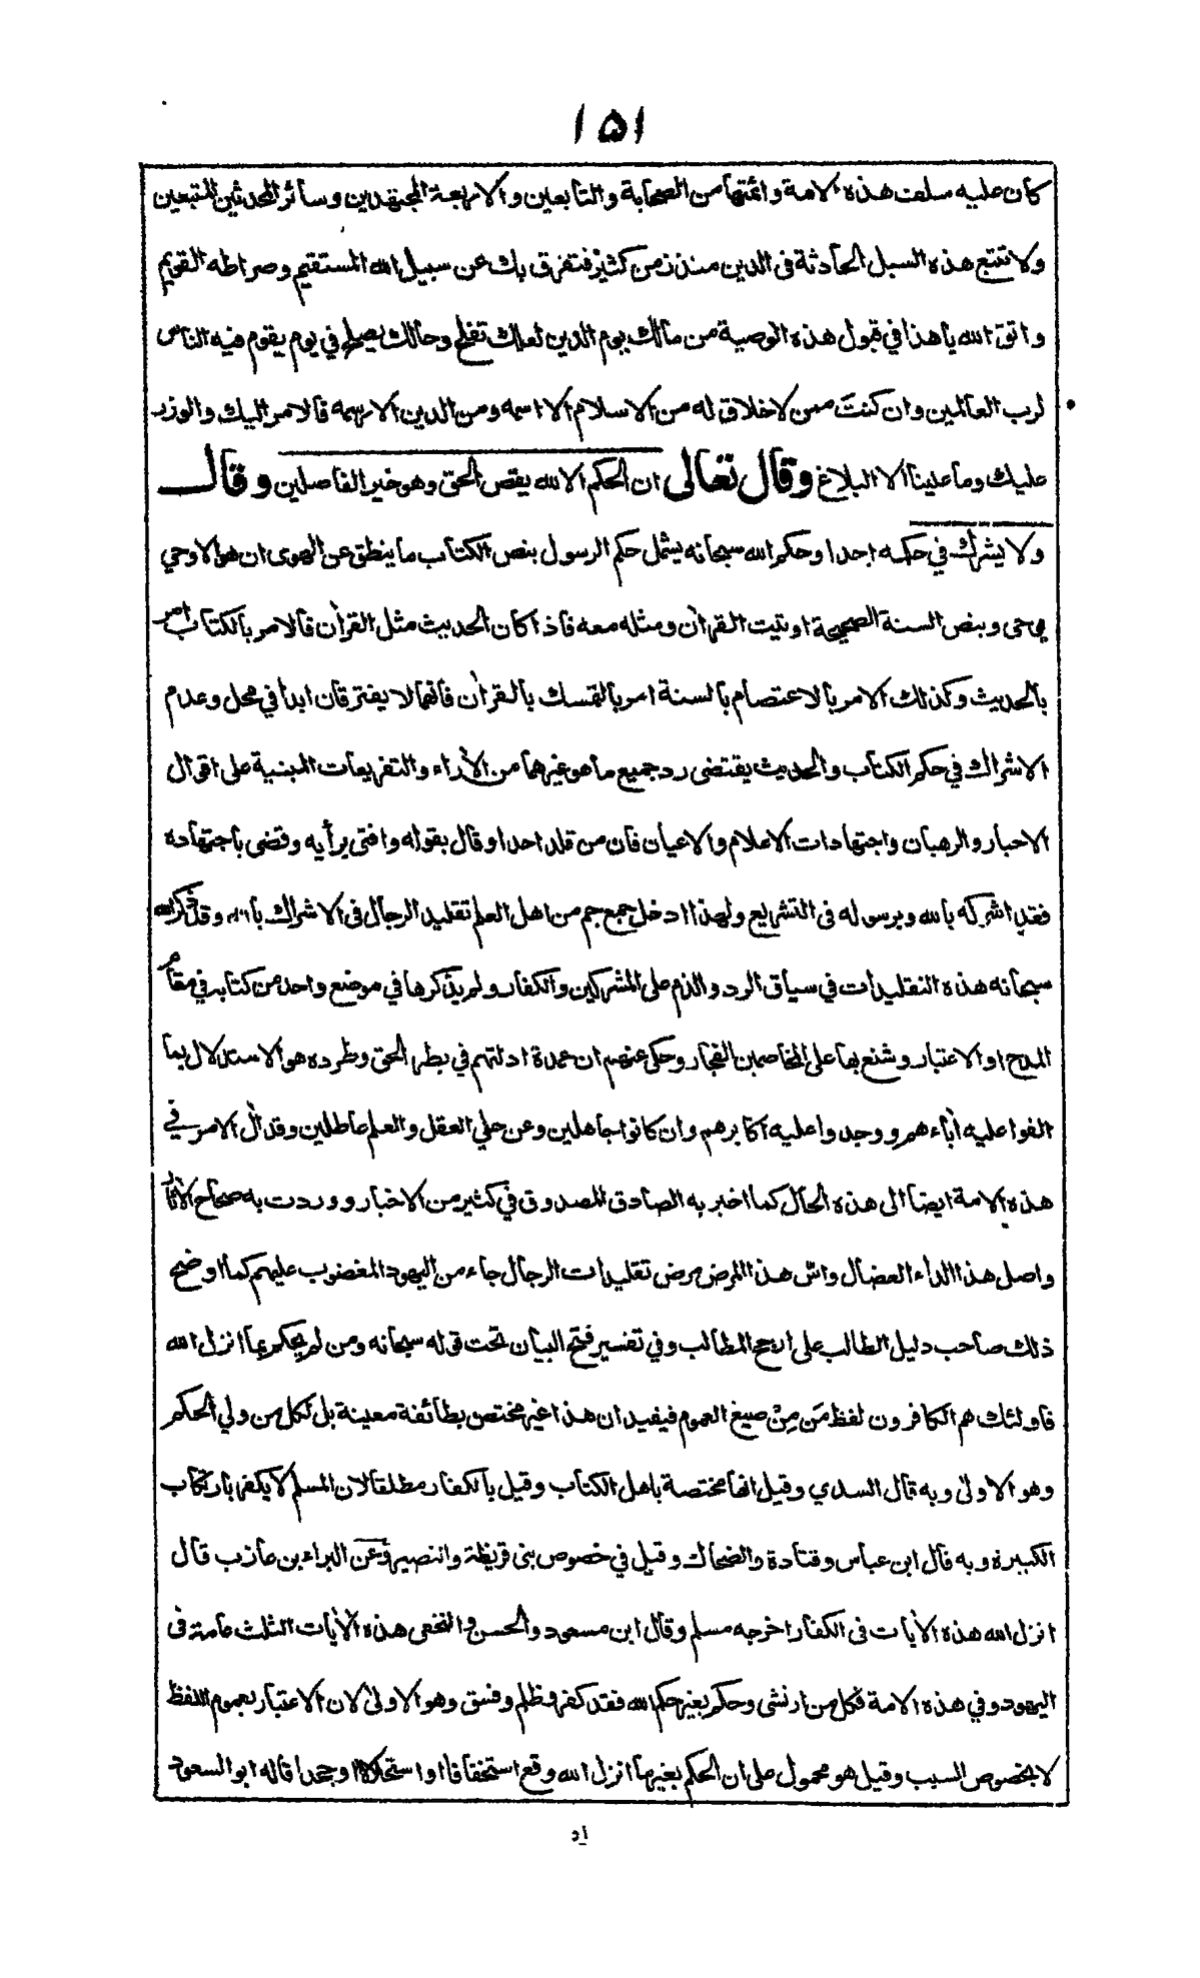 ١٥١
كان عليه سلف هذه الامة وائمتها من الصحابة والتابعين والاربعة المجتهدين وسائر المحدثين المتبعين
ولا تتبع هذه السبل الحادثة فى الدين منذ زمن كثير فتفرق بك عن سبيل الله المستقيم وصراطه القويم
واتق الله يا هذا في قبول هذه الوصية من مالك يوم الدين لعلك تفلح وحالك يصلح في يوم يقوم فيه الناس
لرب العالمين وان كنتَ ممن لا خلاق له من الاسلام الا اسمه ومن الدين الا رسمه فالامر اليك والوزر
عليك وما علينا الا البلاغ وقال تعالى ان الحكم الا لله يقص الحق وهو خير الفاصلين وقال
ولا يشرك في حكمه احدا وحكم الله سبحانه يشمل حكم الرسول بنص الكتاب ما ينطق عن الهوى ان هو الا وحي
يوحى وبنص السنة الصحيحة اوتيت القرآن ومثله معه فاذا كان الحديث مثل القرآن فالامر بالكتاب امر
بالحديث وكذلك الامر بالاعتصام بالسنة امر بالتمسك بالقرآن فانهما لا يفترقان ابدا في محل وعدم
الاشراك في حكم الكتاب والحديث يقتضى رد جميع ما هو غيرهما من الآراء والتفريعات المبنية على اقوال
الاحبار والرهبان واجتهادات الاعلام والاعيان فان من قلد احدا وقال بقوله وافتى برأيه وقضى باجتهاده
فقد اشركه بالله وبرسوله فى التشريع ولهذا ادخل جمع جم من اهل العلم تقليد الرجال فى الاشراك بالله وقد ذكر الله
سبحانه هذه التقليدات في سياق الرد والذم على المشركين والكفار ولم يذكرها في موضع واحد من كتابه في مقام
المدح او الاعتبار وشنع بها على المخاصمين الفجار وحكى عنهم ان عمدة ادلتهم في بطر الحق وطرده هو الاستدلال بما
الفوا عليه آباءهم ووجدوا عليه اكابرهم وان كانوا جاهلين وعن حلي العقل والعلم عاطلين وقد آل الامر في
هذه الامة ايضا الى هذه الحال كما اخبر به الصادق المصدوق في كثير من الاخبار ووردت به صحاح الآثار
واصل هذا الداء العضال واسّ هذا المرض مرض تقليدات الرجال جاء من اليهود المغضوب عليهم كما اوضح
ذلك صاحب دليل الطالب على ارجح المطالب وفي تفسير فتح البيان تحت قوله سبحانه ومن لم يحكم بما انزل الله
فاولئك هم الكافرون لفظ مَن مِنْ صيغ العموم فيفيد ان هذا غير مختص بطائفة معينة بل لكل من ولي الحكم
وهو الاولىٰ وبه قال السدي وقيل انها مختصة باهل الكتاب وقيل بالكفار مطلقا لان المسلم لا يكفر بارتكاب
الكبيرة وبه قال ابن عباس وقتادة والضحاك وقيل في خصوص بنى قريظة والنضير وعن البراء بن عازب قال
انزل الله هذه الآيات فى الكفار اخرجه مسلم وقال ابن مسعود والحسن والنخعى هذه الآيات الثلث عامة فى
اليهود وفي هذه الامة فكل من ارتشى وحكم بغير حكم الله فقد كفر وظلم وفسق وهو الاولىٰ لان الاعتبار بعموم اللفظ
لا بخصوص السبب وقيل هو محمول على ان الحكم بغير ما انزل الله وقع استخفافا او استحلالا او جحدا قاله ابو السعود